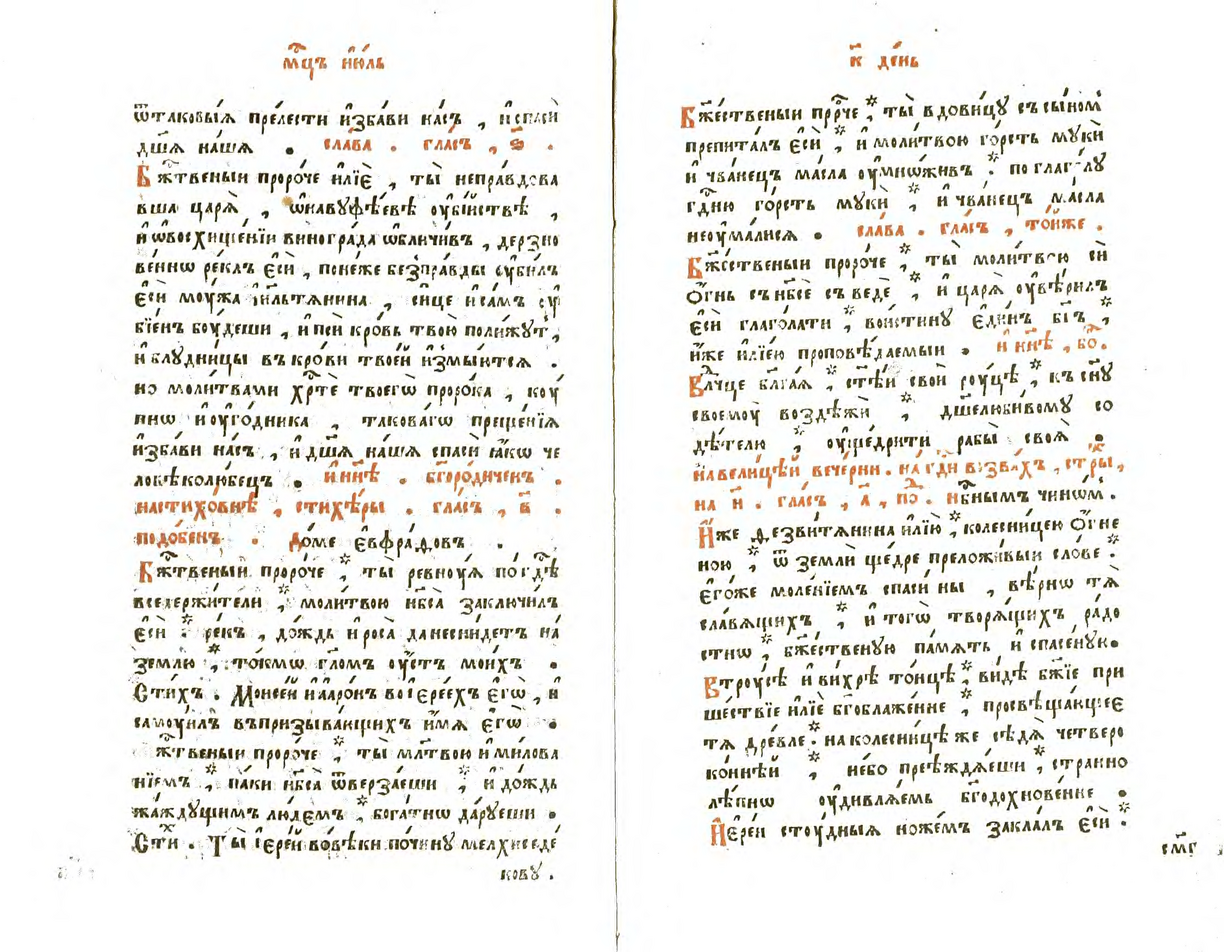 мⷭ҇цъ і҆ю́ль
ѿтаковы́ѧ пре́лести и҆зба́ви на́съ , и҆спаси́
дш҃ѧ на́шѧ . сла́ва . гла́съ , ѕ҃ .
Бжⷭ҇твеныи проро́че илїѐ , ты̀ непра́вдова
вша царѧ̀ , ѡ҆навуѳѣ́евѣ ᲂу҆бі́йствѣ ,
и҆ ѡ҆восхище́нїи виногра́да ѡ҆бличи́въ , дерзно
ве́ннѡ ре́клъ є҆сѝ , поне́же без̾пра́вды ᲂу҆би́лъ
є҆сѝ мᲂу́жа їи҆льтѧ́нина , си́це и҆са́мъ ᲂу҆
бїе́нъ бᲂу́деши , и҆псѝ кро́вь твою̀ поли́жутъ ,
и҆ блудни́цы въ кро́ви твое́й и҆змы́ютсѧ .
но моли́твами хрⷭ҇тѐ твоегѡ̀ проро́ка , кᲂу
пнѡ и҆ᲂуго́дника , такова́гѡ преще́нїѧ
и҆зба́ви на́съ , и҆ дш҃ѧ на́шѧ спасѝ ꙗ҆́кѡ че
ловѣколю́бецъ . и҆нн҃ѣ . бг҃оро́диченъ .
настихо́внѣ , стихѣ́ры . гла́съ , в҃ .
подо́бенъ . До́ме є҆вфра́довъ .
Бжⷭ҇твеныи проро́че , ты̀ ревну́ѧ погдⷭ҇ѣ
вседержи́тели , моли́твою нб҃са̀ заключи́лъ
є҆сѝ : ре́къ , до́ждь и҆ роса̀ да несни́детъ на́
зе́млю , то́кмѡ гл҃омъ ᲂу҆́стъ мои́хъ .
Сти́хъ . Моисе́й и҆ а҆аро́нъ воїере́ехъ є҆гѡ̀ , и҆
самᲂуи́лъ въпризыва́ющихъ и҆́мѧ є҆гѡ̀ .
жⷭ҇твеныи проро́че , ты̀ мл҃твою и҆ ми́лова
нїемъ , па́ки нб҃са̀ ѿверза́еши , и҆ до́ждь
жа́ждущимъ лю́демъ , бога́тнѡ да́руеши .
Стⷯи . Ты̀ і҆ере́й вовѣ́ки почи́ну мелхиседе́
кову .
к҃ де́нь
Бж҃е́ственыи прⷪ҇ро́че , ты̀ вдови́цу съ сы́номъ
препита́лъ є҆сѝ , и҆ моли́твою го́рсть мукѝ
и҆ чва́нецъ ма́сла ᲂу҆мно́живъ : по глаго́лу
гдⷭ҇ню го́рсть мукѝ , и҆ чва́нецъ ма́сла
неᲂума́лисѧ . сла́ва . гла́съ , то́йже .
Бж҃е́ственыи проро́че , ты̀ моли́твою сѝ
о҆́гнь съ нб҃сѐ съведѐ , и҆ царѧ̀ ᲂу҆вѣ́рилъ
є҆сѝ глаго́лати , вои́стину є҆ди́нъ бг҃ъ ,
и҆́же и҆лїе́ю проповѣ́даемыи . и҆ нн҃ѣ , бо҃ .
Влⷣчце бл҃га́ѧ , ст҃ѣ́и свои́ рᲂу́цѣ , къ сн҃у
своемᲂу воздѣ́жи , дш҃елюби́вому со
дѣ́телю , ᲂу҆ще́дрити рабы̀ своѧ̀ .
на вели́цѣй вече́рни . на гдⷭ҇и възва́хъ , стⷯры ,
на и҃ . гла́съ , а҃ , пⷪ . нбⷭ҇нымъ чино́мъ .
И҆́же дезвитѧ́нина и҆лїю̀ , колесни́цею о҆́гне
ною , ѿ землѝ ще́дре преложи́выи сло́ве :
є҆го́же моле́нїемъ спасѝ ны , вѣ́рнѡ тѧ̀
сла́вѧщихъ , и҆ тогѡ̀ творѧ́щихъ ра́до
стнѡ , бж҃е́ственую па́мѧть и҆ спасе́ную .
Втрᲂу́сѣ и҆ ви́хрѣ то́нцѣ , ви́дѣ бж҃їе при
ше́ствїе илїѐ бг҃облаже́нне , просвѣща́ющее
тѧ̀ дре́вле : на колесни́цѣ же сѣдѧ̀ четверо
ко́ннѣй , не́бо преѣжда́еши , стра́нно
лѣ́пнѡ ᲂу҆дивлѧ́емь бг҃одохнове́нне .
И҆ере́и стᲂу́дныѧ ноже́мъ закла́лъ є҆сѝ :
смг҃